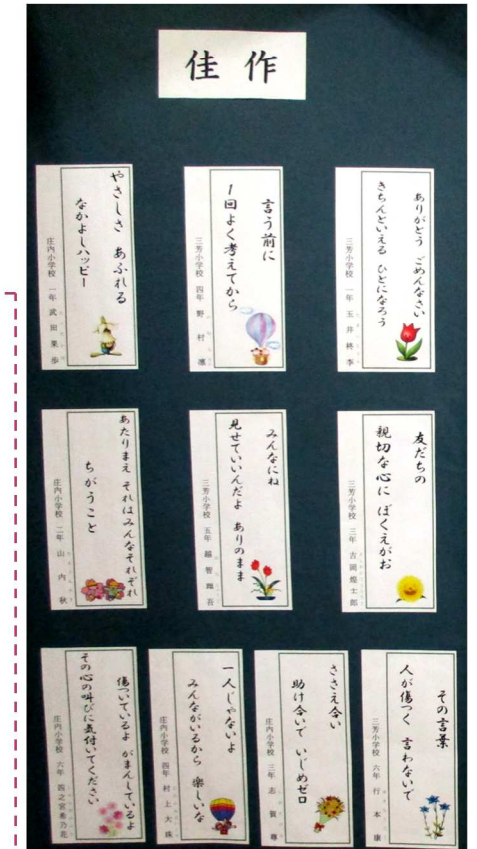 佳作
ありがとう ごめんなさい
きちんといえる ひとになろう
三芳小学校 一年 玉井柊李
言う前に
1回よく考えてから
三芳小学校 四年 野村凛
やさしさ あふれる
なかよしハッピー
庄内小学校 一年 武田果歩
友だちの
親切な心に ぼくえがお
三芳小学校 三年 吉岡煌士郎
みんなにね
見せていいんだよ ありのまま
三芳小学校 五年 越智翔吾
あたりまえ それはみんなそれぞれ
ちがうこと
庄内小学校 二年 山内秋
その言葉
人が傷つく 言わないで
三芳小学校 六年 行本康
ささえ合い
助け合いで いじめゼロ
庄内小学校 三年 志賀尊
一人じゃないよ
みんながいるから 楽しいな
庄内小学校 四年 村上大珠
傷ついているよ がまんしているよ
その心の叫びに気付いてください
庄内小学校 六年 四之宮希乃花